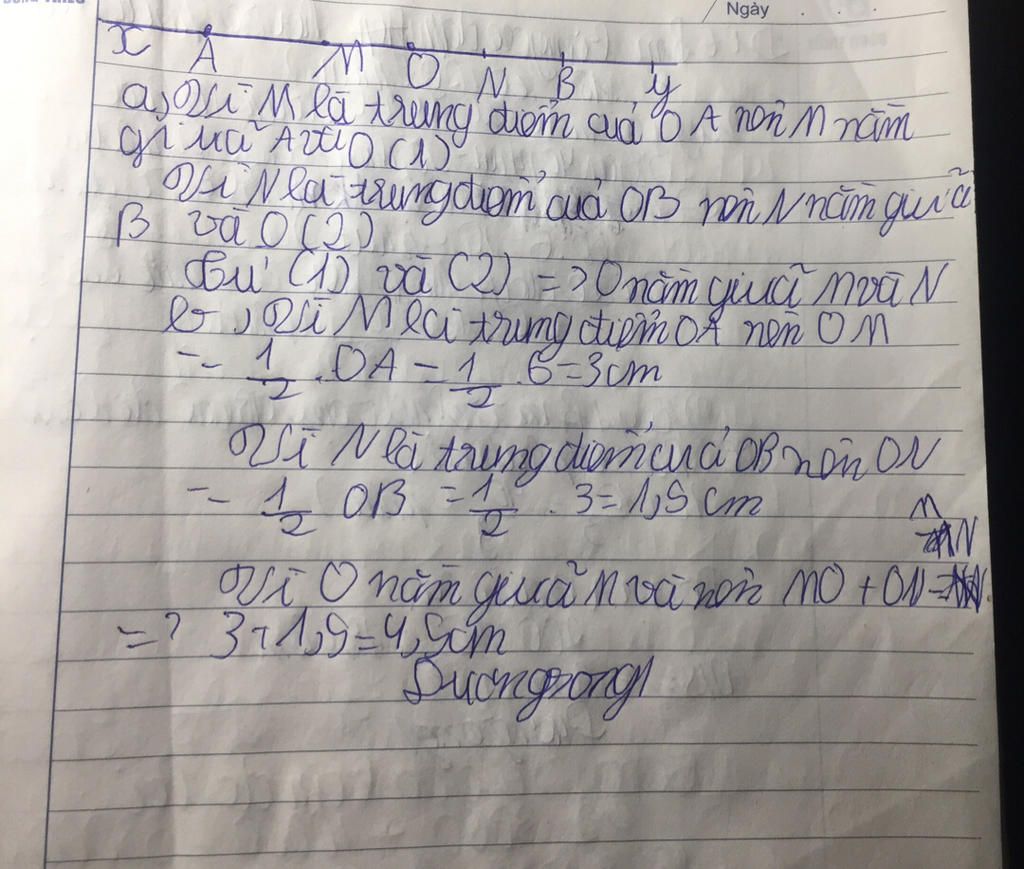 Ngày
x A M O N B y
a, Vì M là trung điểm của OA nên M nằm
giữa A và O (1)
Vì N là trung điểm của OB nên N nằm giữa
B và O (2)
Từ (1) và (2) => O nằm giữa M và N
b, Vì M là trung điểm OA nên OM
= 1/2 . OA = 1/2 . 6 = 3cm
Vì N là trung điểm của OB nên ON
= 1/2 OB = 1/2 . 3 = 1,5 cm
MN
Vì O nằm giữa M và nên MO + ON =
=> 3 + 1,5 = 4,5cm